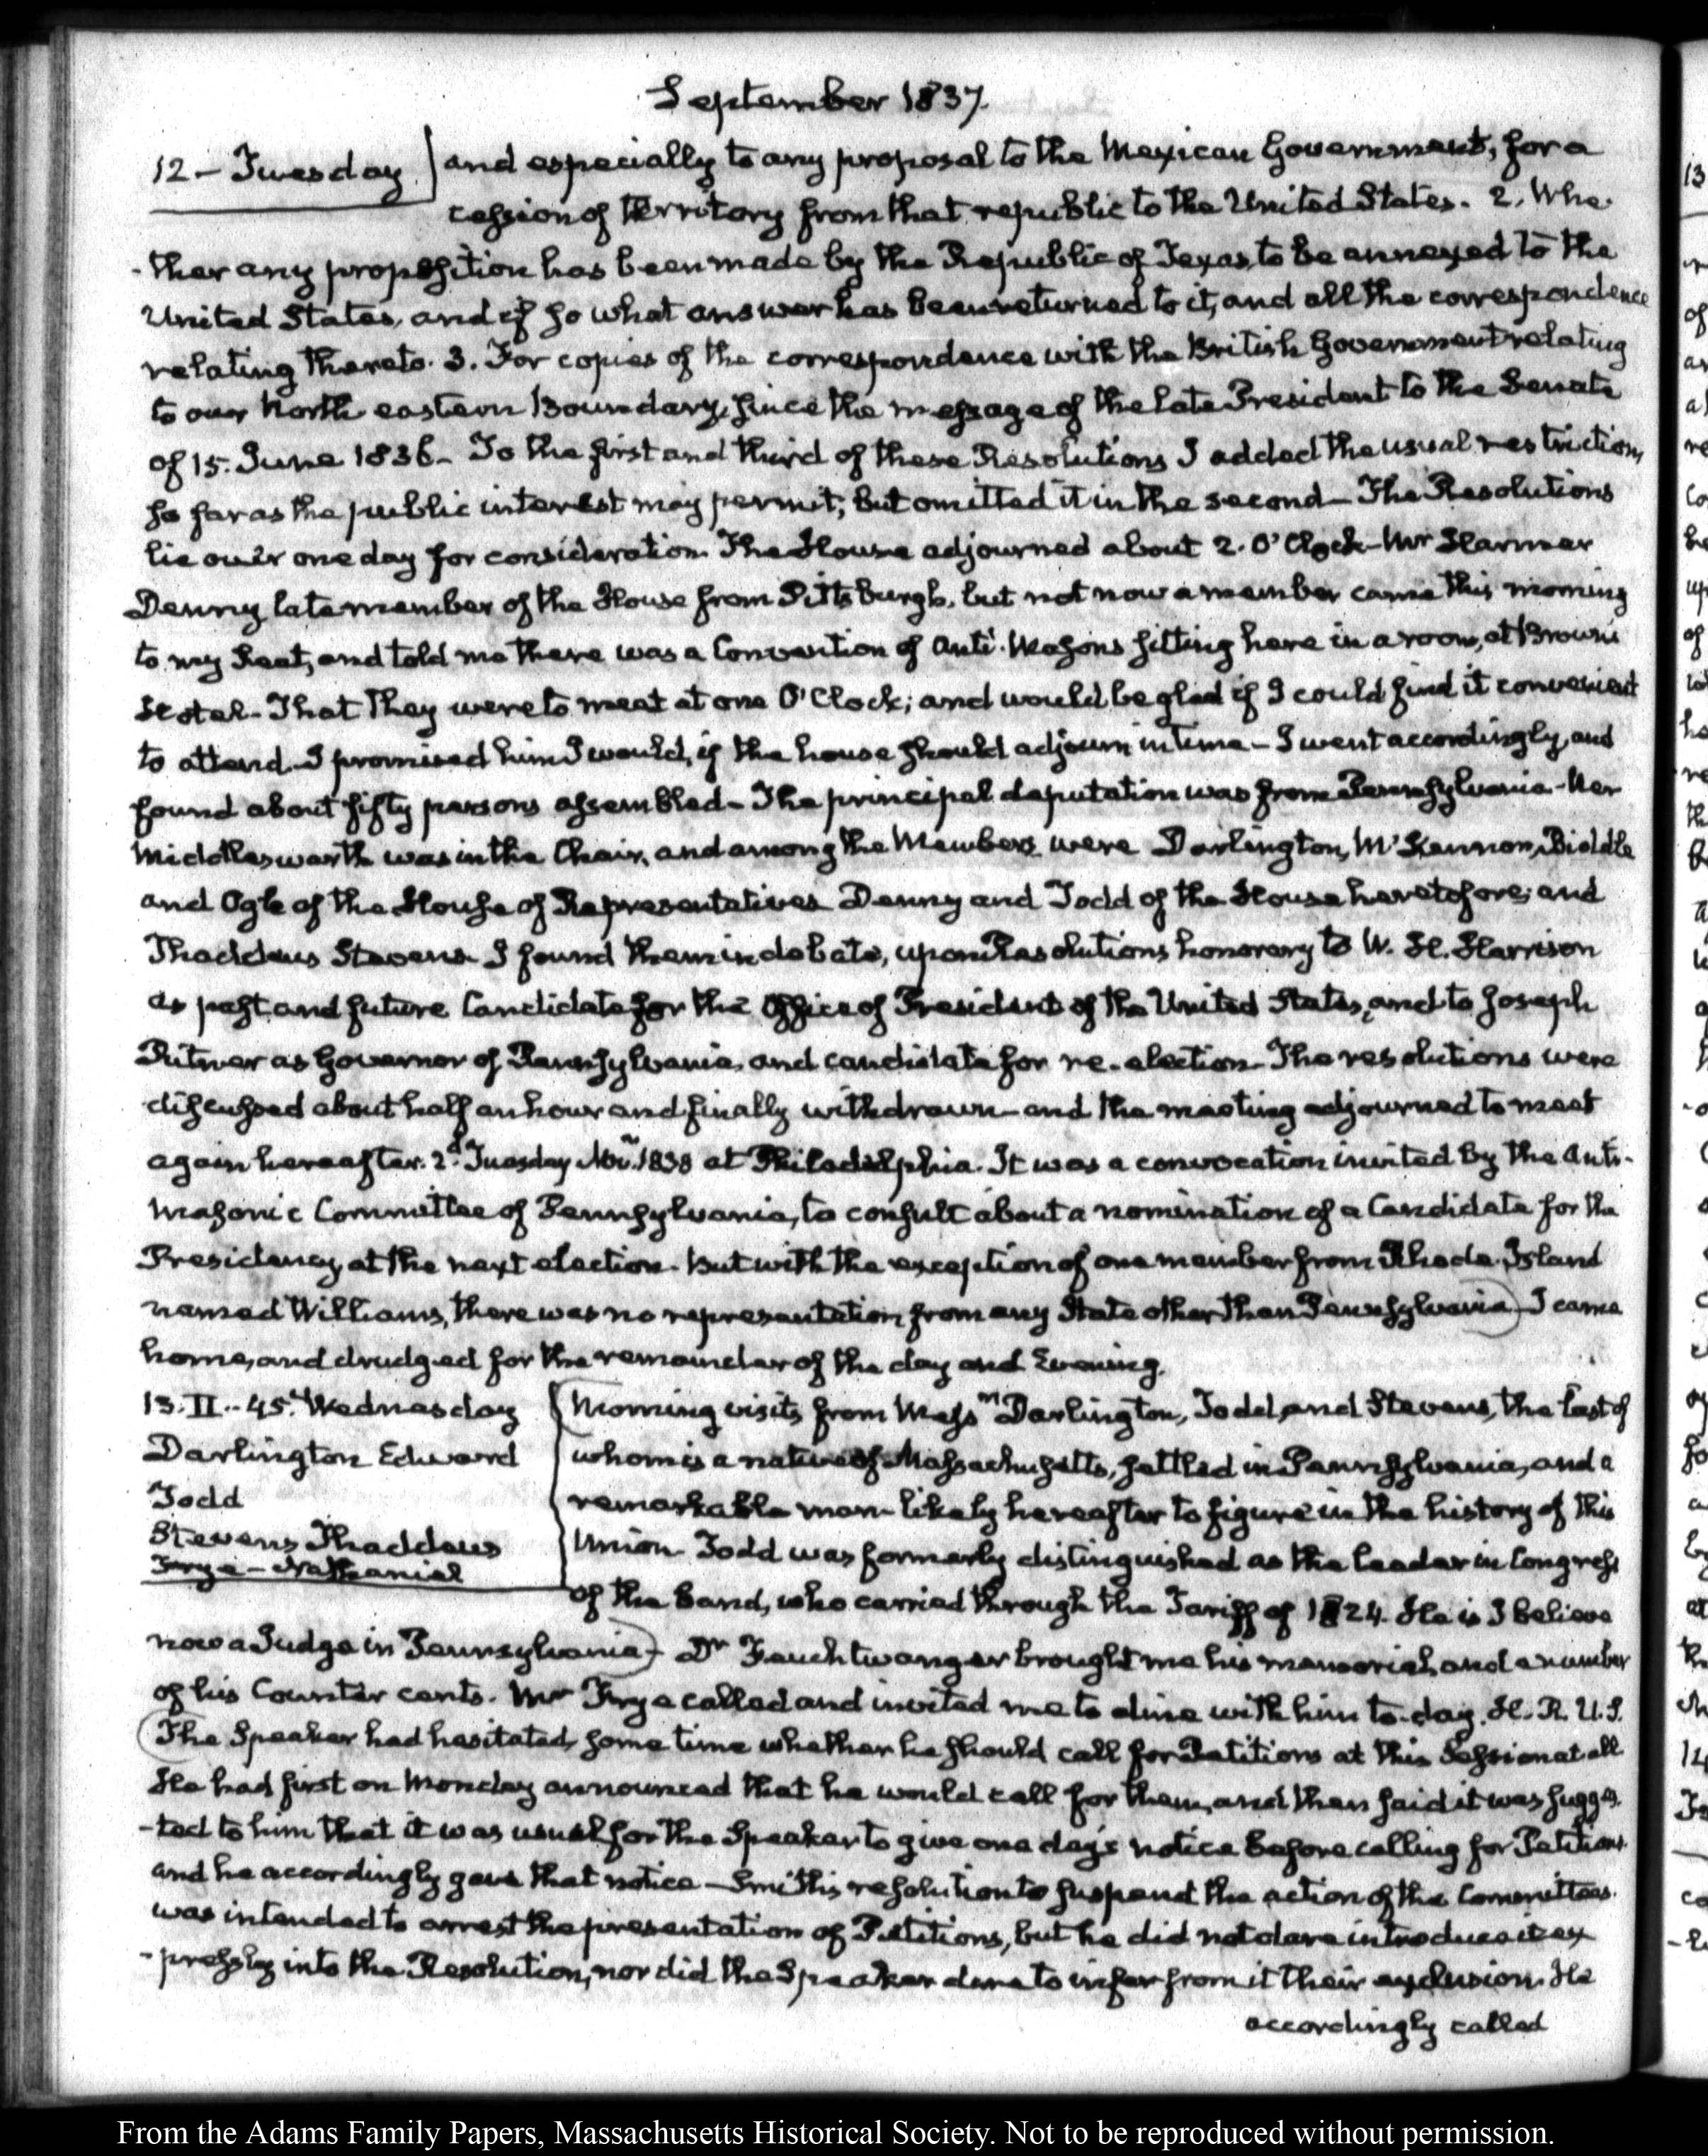 September 1837.
12 - Tuesday. and especially to any proposal to the Mexican Government, for a
cession of Territory from that republic to the United States. 2. Whe-
-ther any proposition has been made by the Republic of Texas, to be annexed to the
United States, and if so what answer has been returned to it, and all the correspondence
relating thereto. 3. For copies of the correspondence with the British Government relating
to our North eastern Boundary, since the message of the late President to the Senate
of 15. June 1836 - To the first and third of these Resolutions I added the usual restriction,
so far as the public interest may permit; but omitted it in the second - The Resolutions
lie over one day for consideration. The House adjourned about 2. O'Clock - Mr Harmar
Denny late member of the House from Pittsburgh, but not now a member came this morning
to my Seat, and told me there was a Convention of Anti-Masons sitting here in a room, at Brown's
Hotel - That they were to meet at one O'Clock; and would be glad if I could find it convenient
to attend. I promised him I would, if the house should adjourn in time - I went accordingly, and
found about fifty persons assembled - The principal deputation was from Pennsylvania - Ner
Middleswarth was in the Chair, and among the Members were Darlington, McKennon, Biddle
and Ogle of the House of Representatives Denny and Todd of the House heretofore; and
Thaddeus Stevens. I found them in debate, upon Resolutions honorary to W. H. Harrison
as past and future Candidate for the Office of President of the United States, and to Joseph
Ritner as Governor of Pennsylvania, and candidate for re-election - The resolutions were
discussed about half an hour and finally withdrawn - and the meeting adjourned to meet
again hereafter. 2d. Tuesday Nov. 1838 at Philadelphia. It was a convocation invited by the Anti-
Masonic Committee of Pennsylvania, to consult about a nomination of a Candidate for the
Presidency at the next election. But with the exception of one member from Rhode-Island
named Williams, there was no representation from any State other than Pennsylvania) I came
home, and drudged for the remainder of the day and Evening.
13. II.. 45. Wednesday Morning visits from Messrs Darlington, Todd, and Stevens, the last of
Darlington Edward whom is a native of Massachusetts, settled in Pennsylvania, and a
Todd remarkable man likely hereafter to figure in the history of this
Stevens Thaddeus Union. Todd was formerly distinguished as the leader in Congress
Frye - Nathaniel of the band, who carried through the Tariff of 1824. He is I believe
now a Judge in Pennsylvania) - Dr Feuchtwanger brought me his memorial, and a number
of his Counter cents. Mr Frye called and invited me to dine with him to-day. H. R. U.S.
(The Speaker had hesitated some time whether he should call for Petitions at this Session at all
He had first on Monday announced that he would call for them, and then said it was sugges-
-ted to him that it was usual for the Speaker to give one day's notice before calling for Petitions
and he accordingly gave that notice - Smith's resolution to suspend the action of the Committees
was intended to arrest the presentation of Petitions, but he did not dare introduce it ex
-pressly into the Resolution, nor did the Speaker dare to infer from it their exclusion. He
accordingly called
From the Adams Family Papers, Massachusetts Historical Society. Not to be reproduced without permission.